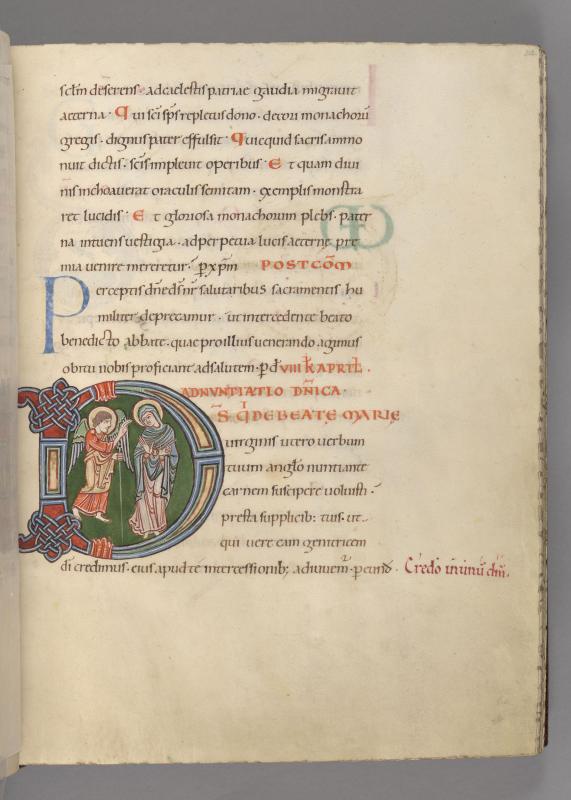 sclm deserens· ad caelestis patriae gaudia migravit
aeterna· Qui sci sps repletus dono· decori monachorū
gregis· dignus pater effulsit· Quicquid sacris ammo
nuit dictis· scis implevit operibus· Et quam divi
nis inchoaverat oraculis semitam· exemplis monstra
ret lucidis· Et gloriosa monachorum plebs· pater
na intuens vestigia· ad perpetua lucis aeternę prę
mia venire mereretur· p xpm POST COM
Perceptis dne ds nr salutaribus sacramentis· hu
militer deprecamur· ut intercedente beato
benedicto abbate· quae pro illius venerando agimus
obitu nobis proficiant ad salutem· p d VIII K APRIL·
ADNVNTIATIO DNICA·
DS QI DE BEATĘ MARIĘ
virginis utero verbum
tuum anglo nuntiante
carnem suscipere voluisti·
presta supplicib: tuis· ut
qui vere eam genitricem
di credimus· eius apud te intercessionib; adiuvem· p eund· Credo in unu dm·